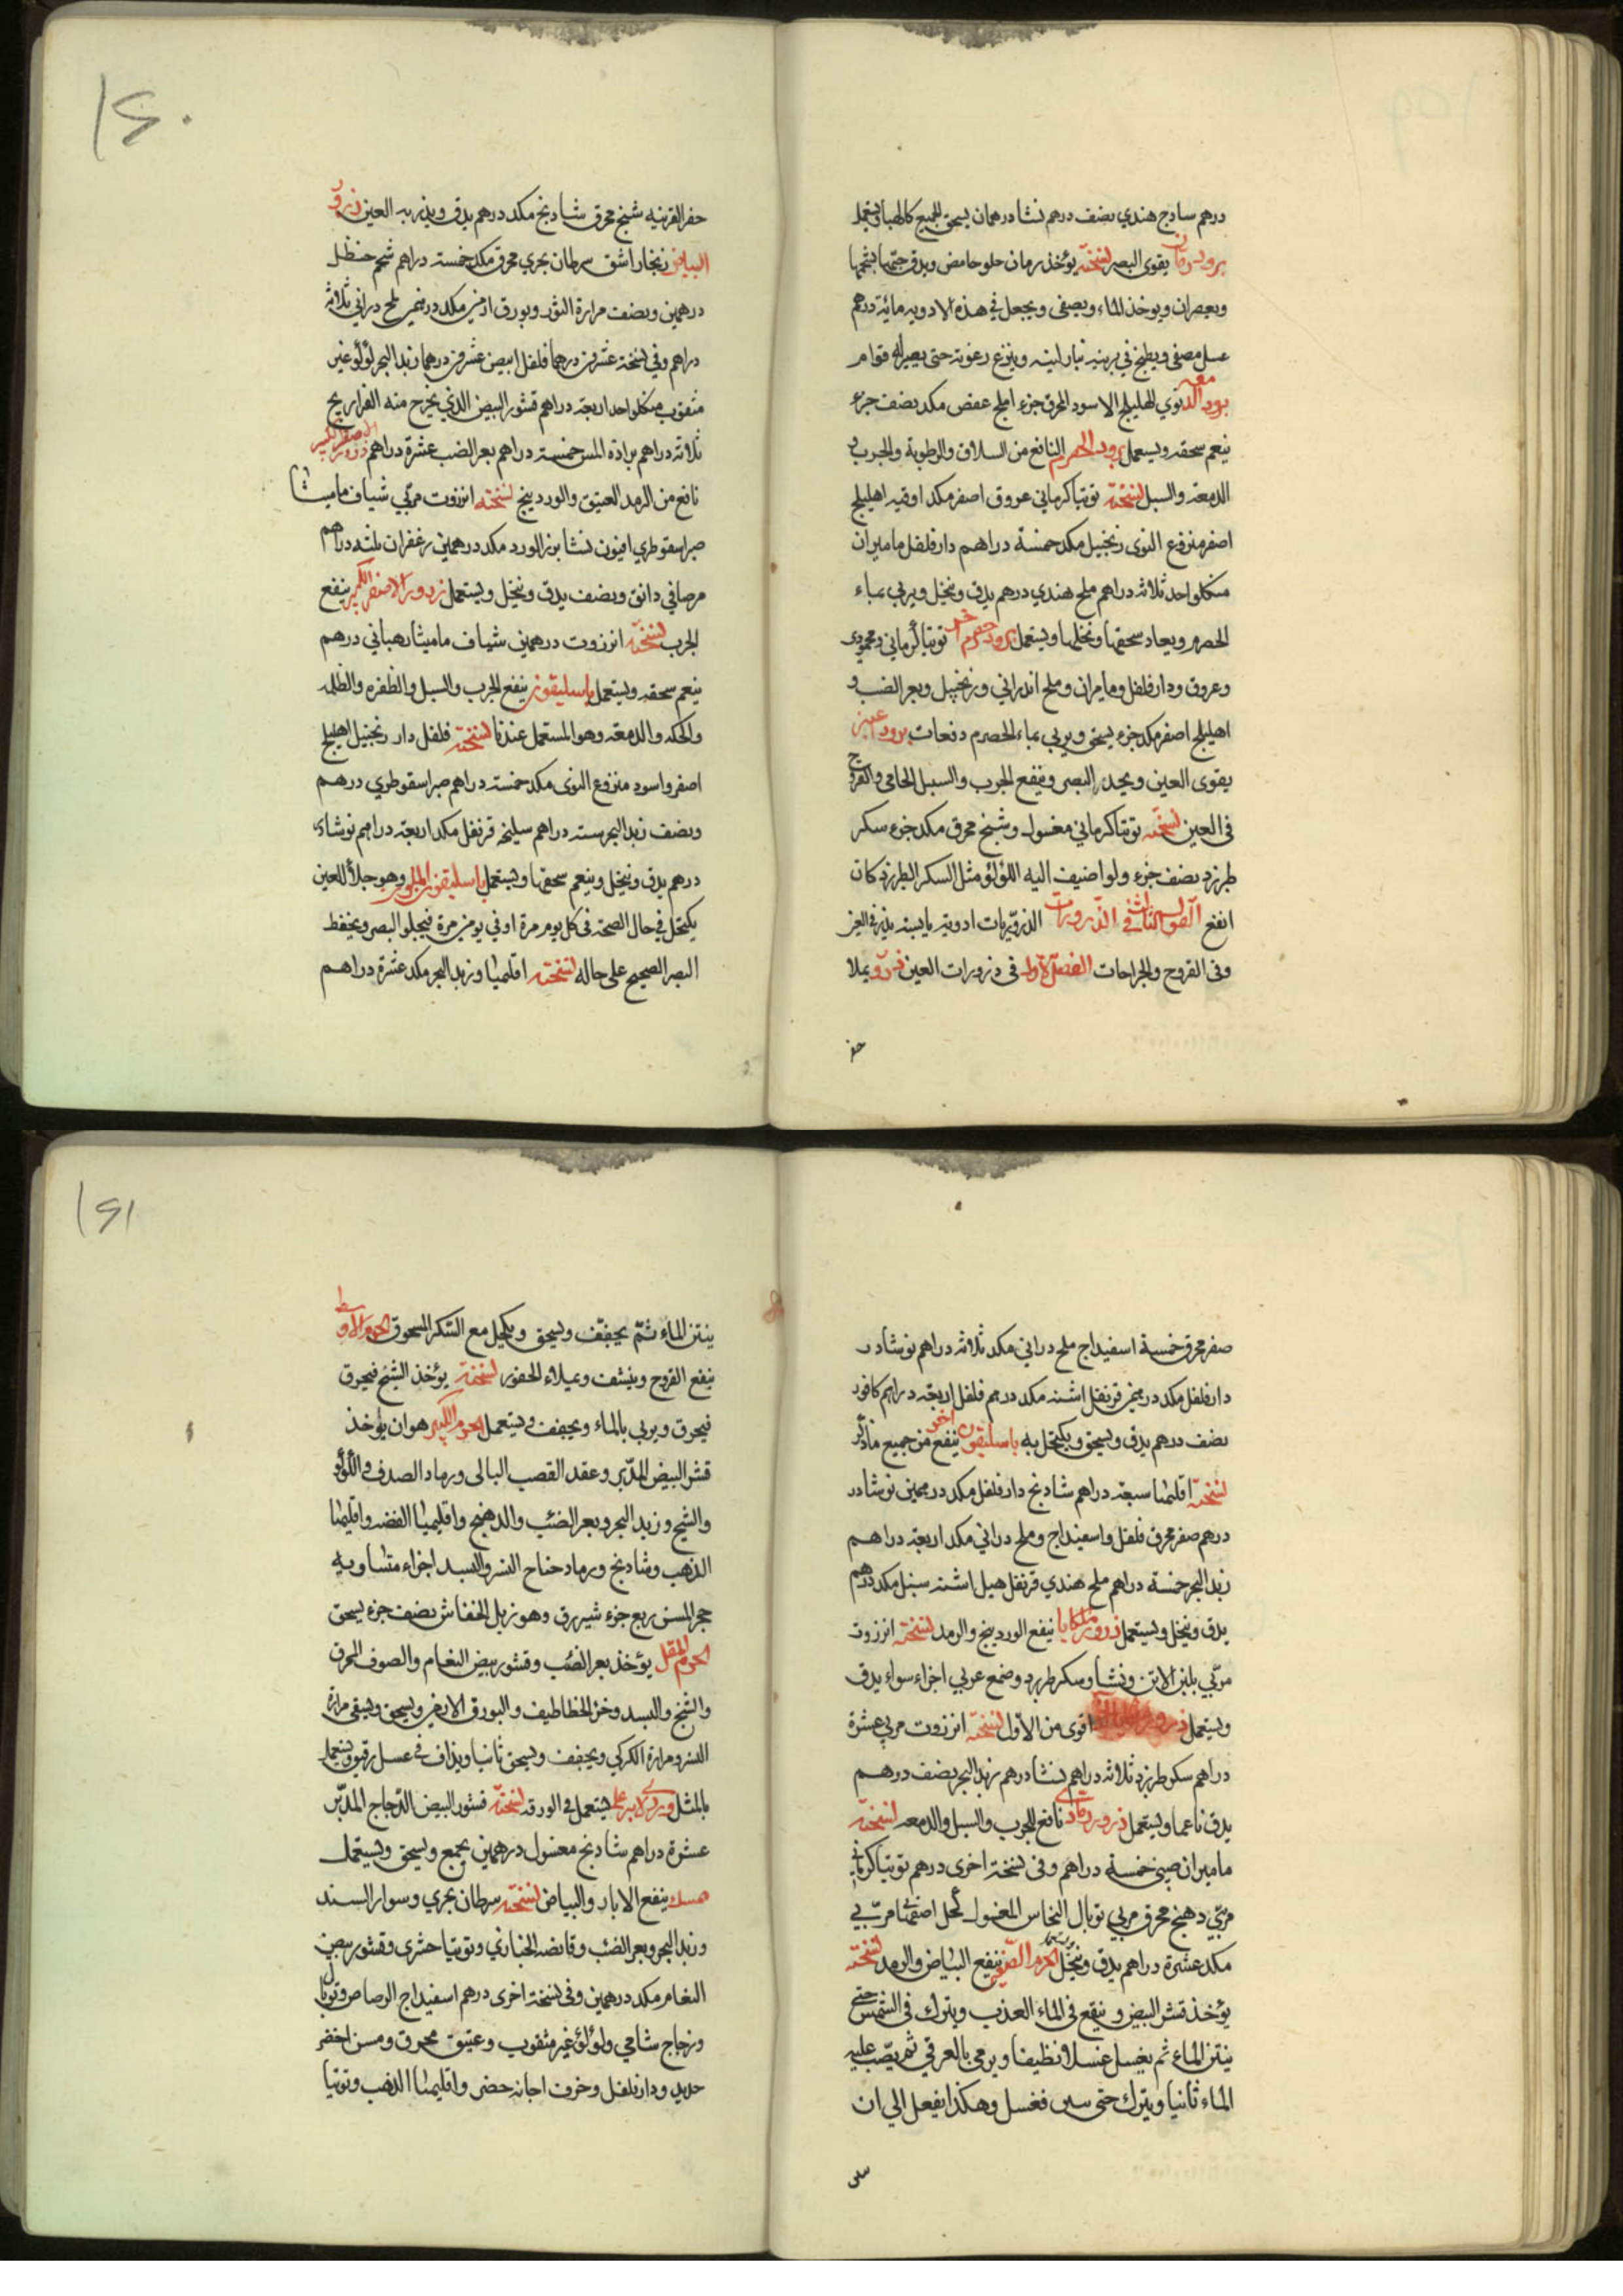 درهم ساذج هندي نصف درهم نشا درهمان يسحق الجميع كالهبا ويستعمل
يقوى البصر نسخته يؤخذ رمان حلو حامض ويدق حبها بشحمها
ويعصران ويوخذ الماء ويصفى ويجعل في هذه الادويه مائة درهم
عسل مصفى ويطبخ في برنيه بنار لينه وينزع رغوته حتى يصير له قوام
برود الدمعه نوي الهليلج الاسود المحرق جزء املج عفص مكد نصف جزء
ينعم سحقه ويستعمل برود الحصرم النافع من السلاق والرطوبة والجرب و
الدمعة والسبل نسخته توتيا كرماني عروق اصفر مكد اوقيه اهليلج
اصفر منزوع النوى زنجبيل مكد خمسة دراهم دارفلفل ماميران
مكلواحد ثلاثه دراهم ملح هندي درهم يدق وينخل ويربي بماء
الحصرم ويعاد سحقها ونخلها ويستعمل برود حصرم اخر توتيا كرماني ومحمودى
وعروق ودارفلفل وماميران وملح اندراني وزنجبيل وبعر الضب و
اهليلج اصفر مكد جزء يسحق ويربي بماء الحصرم دفعات برود عين
يقوى العين ويحد البصر وينفع الجرب والسبل الحامي والقروح
في العين نسخته توتيا كرماني مغسول وشنج محرق مكد جزء سكر
طبرزد نصف جزء ولو اضيف اليه اللؤلؤ مثل السكر الطبرزد كان
انفع القول الثاني في الذرورات الذروريات ادويه يابسه يذر في العين
وفى القروح والجراحات الفصل الاول في ذرورات العين ذرور يملا
حفر
١٤٠
حفر القرنيه شنج محرق شادنج مكد درهم يدق ويذر به العين ذرور
البياض زنجار اشق سرطان بحري محرق مكد خمسة دراهم شحم حنظل
درهمين ونصف مرارة الثور وبورق ارمني مكد درهمين ملح دراني ثلاثة
دراهم وفي نسخة عشرين درهما فلفل ابيض عشرين درهما زبد البحر لؤلؤ غير
مثقوب مكلواحد اربعة دراهم قشور البيض الذي يخرج منه الفراريج
ثلاثة دراهم برادة المسن خمسة دراهم بعر الضب عشرة دراهم ذرور الاصفر الكبير
نافع من الرمد العتيق والوردينج نسخته انزروت مربي شياف ماميثا
صبر اسقوطري افيون نشا بزر الورد مكد درهمين زعفران ثلثة دراهم
مرصافي دانق ونصف يدق وينخل ويستعمل ذرور الاصفر الكبير ينفع
الجرب نسخته انزروت درهمين شياف ماميثا رهباني درهم
ينعم سحقه ويستعمل باسليقون ينفع الجرب والسبل والظفره والظلمه
والحكه والدمعه وهو المستعمل عندنا نسخته فلفل دار زنجبيل اهليلج
اصفر واسود منزوع النوى مكد خمسة دراهم صبر اسقوطري درهم
ونصف زبد البحر سته دراهم سليخه قرنفل مكد اربعة دراهم نوشادر
درهم يدق وينخل وينعم سحقها ويستعمل باسليقون الملوكي وهو جلاء للعين
يكتحل في حال الصحة في كل يوم مرة او في يومين مرة فيجلو البصر ويحفظ
البصر الصحيح على حاله نسخته اقليميا وزبد البحر مكد عشرة دراهم
صفر محرق خمسة اسفيداج ملح دراني مكد ثلاثه دراهم نوشادر
دارفلفل مكد درهمين قرنفل اشنه مكد درهم فلفل اربعة دراهم كافور
نصف درهم يدق ويسحق ويكتحل به باسليقون اخر ينفع من جميع ما ذكر
نسخته اقليميا سبعة دراهم شادنج دارفلفل مكد درهمين نوشادر
درهم صفر محرق فلفل واسفيداج وملح دراني مكد اربعة دراهم
زبد البحر خمسة دراهم ملح هندي قرنفل هيل اشنه سنبل مكد درهم
يدق وينخل ويستعمل ذرور ملكايا ينفع الوردينج والرمد نسخته انزروت
مربي بلبن الاتن ونشا وسكر طبرزد وصمغ عربي اجزاء سواء يدق
ويستعمل ذرور اقوى من الاول نسخته انزروت مربى عشرة
دراهم سكر طبرزد ثلاثه دراهم نشا درهم زبد البحر نصف درهم
يدق ناعما ويستعمل ذرور نافع للجرب والسبل والدمعه نسخته
ماميران صيني خمسة دراهم وفى نسخة اخرى درهم توتيا كرماني
مربي دهنج محرق مربي توبال النحاس المغسول كحل اصفهاني مربي
مكد عشرة دراهم يدق وينخل الحرم الصغير ينفع البياض والرمد نسخته
يؤخذ قشر البيض و ينقع في الماء العذب ويترك في الشمس حتى
ينتن الماء ثم يغسل غسلا نظيفا ويرمي بالعرقي ثم يصب عليه
الماء ثانيا ويترك حتى ينتن فغسل وهكذا يفعل الي ان
ينتن
١٤١
ينتن الماء ثم يجفف ويسحق ويكحل مع السكر المسحوق الحرم الاوسط
ينفع القروح وينشف ويملاء الحفور نسخته يؤخذ الشنج فيحرق
فيحرق ويربي بالماء ويجفف ويستعمل الحرم الكبير هو ان يؤخذ
قشر البيض المدبر وعقد القصب البالى ورماد الصدف واللؤلؤ
والشيح وزبد البحر وبعر الضب والدهنج واقليميا الفضه واقليميا
الذهب وشادنج ورماد جناح النسر والبسد اجزاء متساويه
حجر المسن ربع جزء شيرزق وهو زبل الخفاش نصف جزء يسحق
الحرم المقل يؤخذ بعر الضب وقشور بيض النعام والصوف المحرق
والشنج والبسد وخرء الخطاطيف والبورق الارمني ويسحق ويسقى مرارة
النسر ومرارة الكركي ويجفف ويسحق ثانيا ويذاف في عسل رقيق ويستعمل
بالمثل يستعمل في الورقه نسخته قشور البيض الدجاج المدبر
عشرة دراهم شادنج مغسول درهمين يجمع ويسحق ويستعمل
مسك ينفع الاثار والبياض نسخته سرطان بحري وسوار السند
وزبد البحر وبعر الضب وقانصه الحباري وتوتيا حشري وقشور بيض
النعام مكد درهمين وفى نسخة اخرى درهم اسفيداج الرصاص وتوبال
وزجاج شامي ولؤلؤ غير مثقوب وعتيق محروق ومسن اخضر
حديد ودارفلفل وخزف اجانه خضر واقليميا الذهب وتوتيا